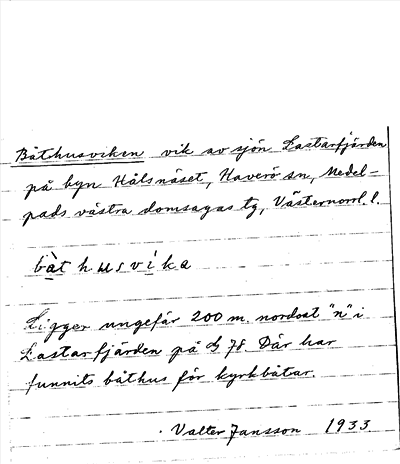 Båthusviken vik av sjön Lastarfjärden
på byn Hålsnäset, Haverö sn, Medel-
pads västra domsagas tg, Västernorrl. l.
bàt husvíka
Ligger ungefär 200 m. nordost "n" i
Lastarfjärden på 78. Där har
funnits båthus för kyrkbåtar.
Valter Jansson 1933